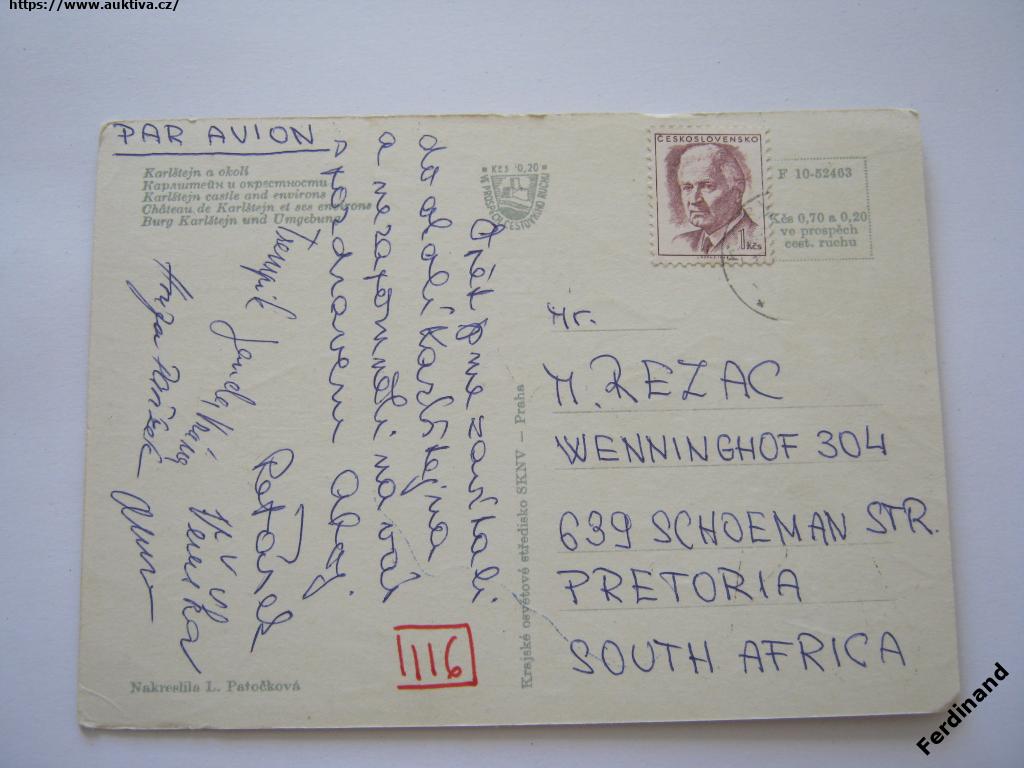 https://www.auktiva.cz/
PAR AVION
Karlštejn a okolí
Карлштейн и окрестности
Karlštejn castle and environs
Château de Karlštejn et ses environs
Burg Karlštejn und Umgebung
Kčs 0,20
VE PROSPĚCH CESTOVNÍHO RUCHU
ČESKOSLOVENSKO
1 Kčs
F 10-52463
Kčs 0,70 a 0,20
ve prospěch
cest. ruchu
Opět jsme zavítali
do okolí Karlštejna
a nezapomněli na vás
s pozdravem Ahoj.
Věruška
Krajské osvětové středisko SKNV — Praha
Mr.
M. REZAC
WENNINGHOF 304
639 SCHOEMAN STR.
PRETORIA
SOUTH AFRICA
1116
Nakreslila L. Patočková
Ferdinand